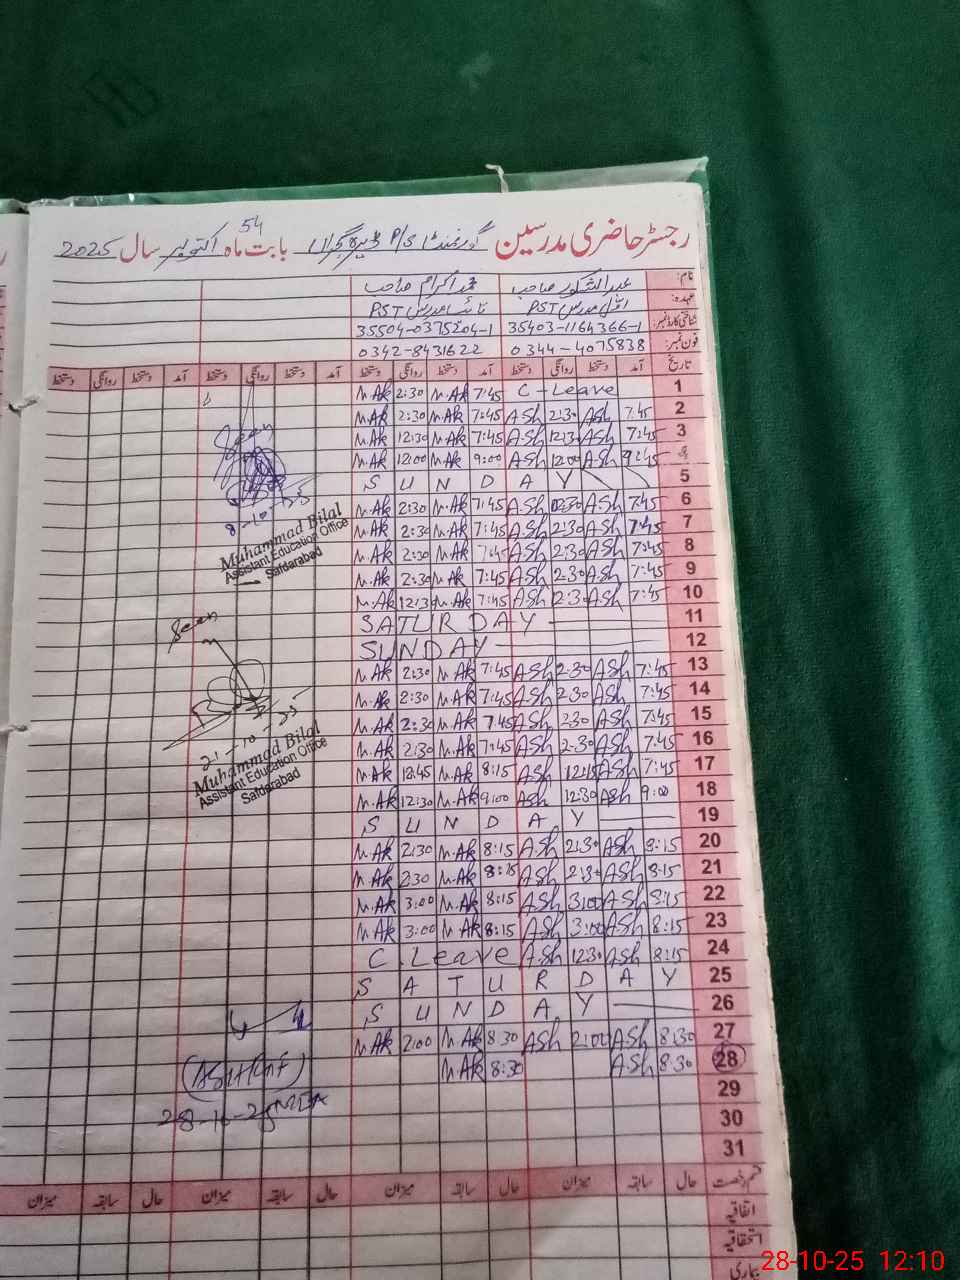 رجسٹر حاضری مدرسین گورنمنٹ P/S ڈیرہ گجراں بابت ماہ اکتوبر سال 2025
54
نام: عبدالشکور صاحب محمد اکرام صاحب
عہدہ: اول مدرس PST نائب مدرس PST
شناختی کارڈ نمبر: 35403-1164366-1 35504-0375204-1
فون نمبر: 0344-4075838 0342-8431622
تاریخ آمد دستخط روانگی دستخط آمد دستخط روانگی دستخط آمد دستخط روانگی دستخط آمد دستخط روانگی دستخط
1 C-Leave 7:45 M.Ak 2:30 M.Ak
2 7:45 ASh 2:30 ASh 7:45 M.Ak 2:30 M.Ak
3 7:45 ASh 12:30 ASh 7:45 M.Ak 12:30 M.Ak
4 9:45 ASh 12:00 ASh 9:00 M.Ak 12:00 M.Ak
5 SUNDAY
6 7:45 ASh 2:30 ASh 7:45 M.Ak 2:30 M.Ak
7 7:45 ASh 2:30 ASh 7:45 M.Ak 2:30 M.Ak
8 7:45 ASh 2:30 ASh 7:45 M.Ak 2:30 M.Ak
9 7:45 ASh 2:30 ASh 7:45 M.Ak 2:30 M.Ak
10 7:45 ASh 2:30 ASh 7:45 M.Ak 12:3 M.Ak
11 SATURDAY
12 SUNDAY
13 7:45 ASh 2:30 ASh 7:45 M.Ak 2:30 M.Ak
14 7:45 ASh 2:30 ASh 7:45 M.Ak 2:30 M.Ak
15 7:45 ASh 2:30 ASh 7:45 M.Ak 2:30 M.Ak
16 7:45 ASh 2:30 ASh 7:45 M.Ak 2:30 M.Ak
17 7:45 ASh 12:15 ASh 8:15 M.Ak 12:45 M.Ak
18 9:00 ASh 12:30 ASh 9:00 M.Ak 12:30 M.Ak
19 SUNDAY
20 8:15 ASh 2:30 ASh 8:15 M.Ak 2:30 M.Ak
21 8:15 ASh 2:30 ASh 8:15 M.Ak 2:30 M.Ak
22 8:15 ASh 3:00 ASh 8:15 M.Ak 3:00 M.Ak
23 8:15 ASh 3:00 ASh 8:15 M.Ak 3:00 M.Ak
24 8:15 ASh 12:30 ASh C.Leave
25 SATURDAY
26 SUNDAY
27 8:30 ASh 2:00 ASh 8:30 M.Ak 2:00 M.Ak
28 8:30 ASh 8:30 M.Ak
29
30
31
Seen
8-10-25
Muhammad Bilal
Assistant Education Office
Safdarabad
Seen
21-10-25
Muhammad Bilal
Assistant Education Office
Safdarabad
28-10-25 MEA
قسم رخصت حال سابقہ میزان حال سابقہ میزان حال سابقہ میزان حال سابقہ میزان
اتفاقیہ
استحقاقیہ
بیماری
28-10-25 12:10